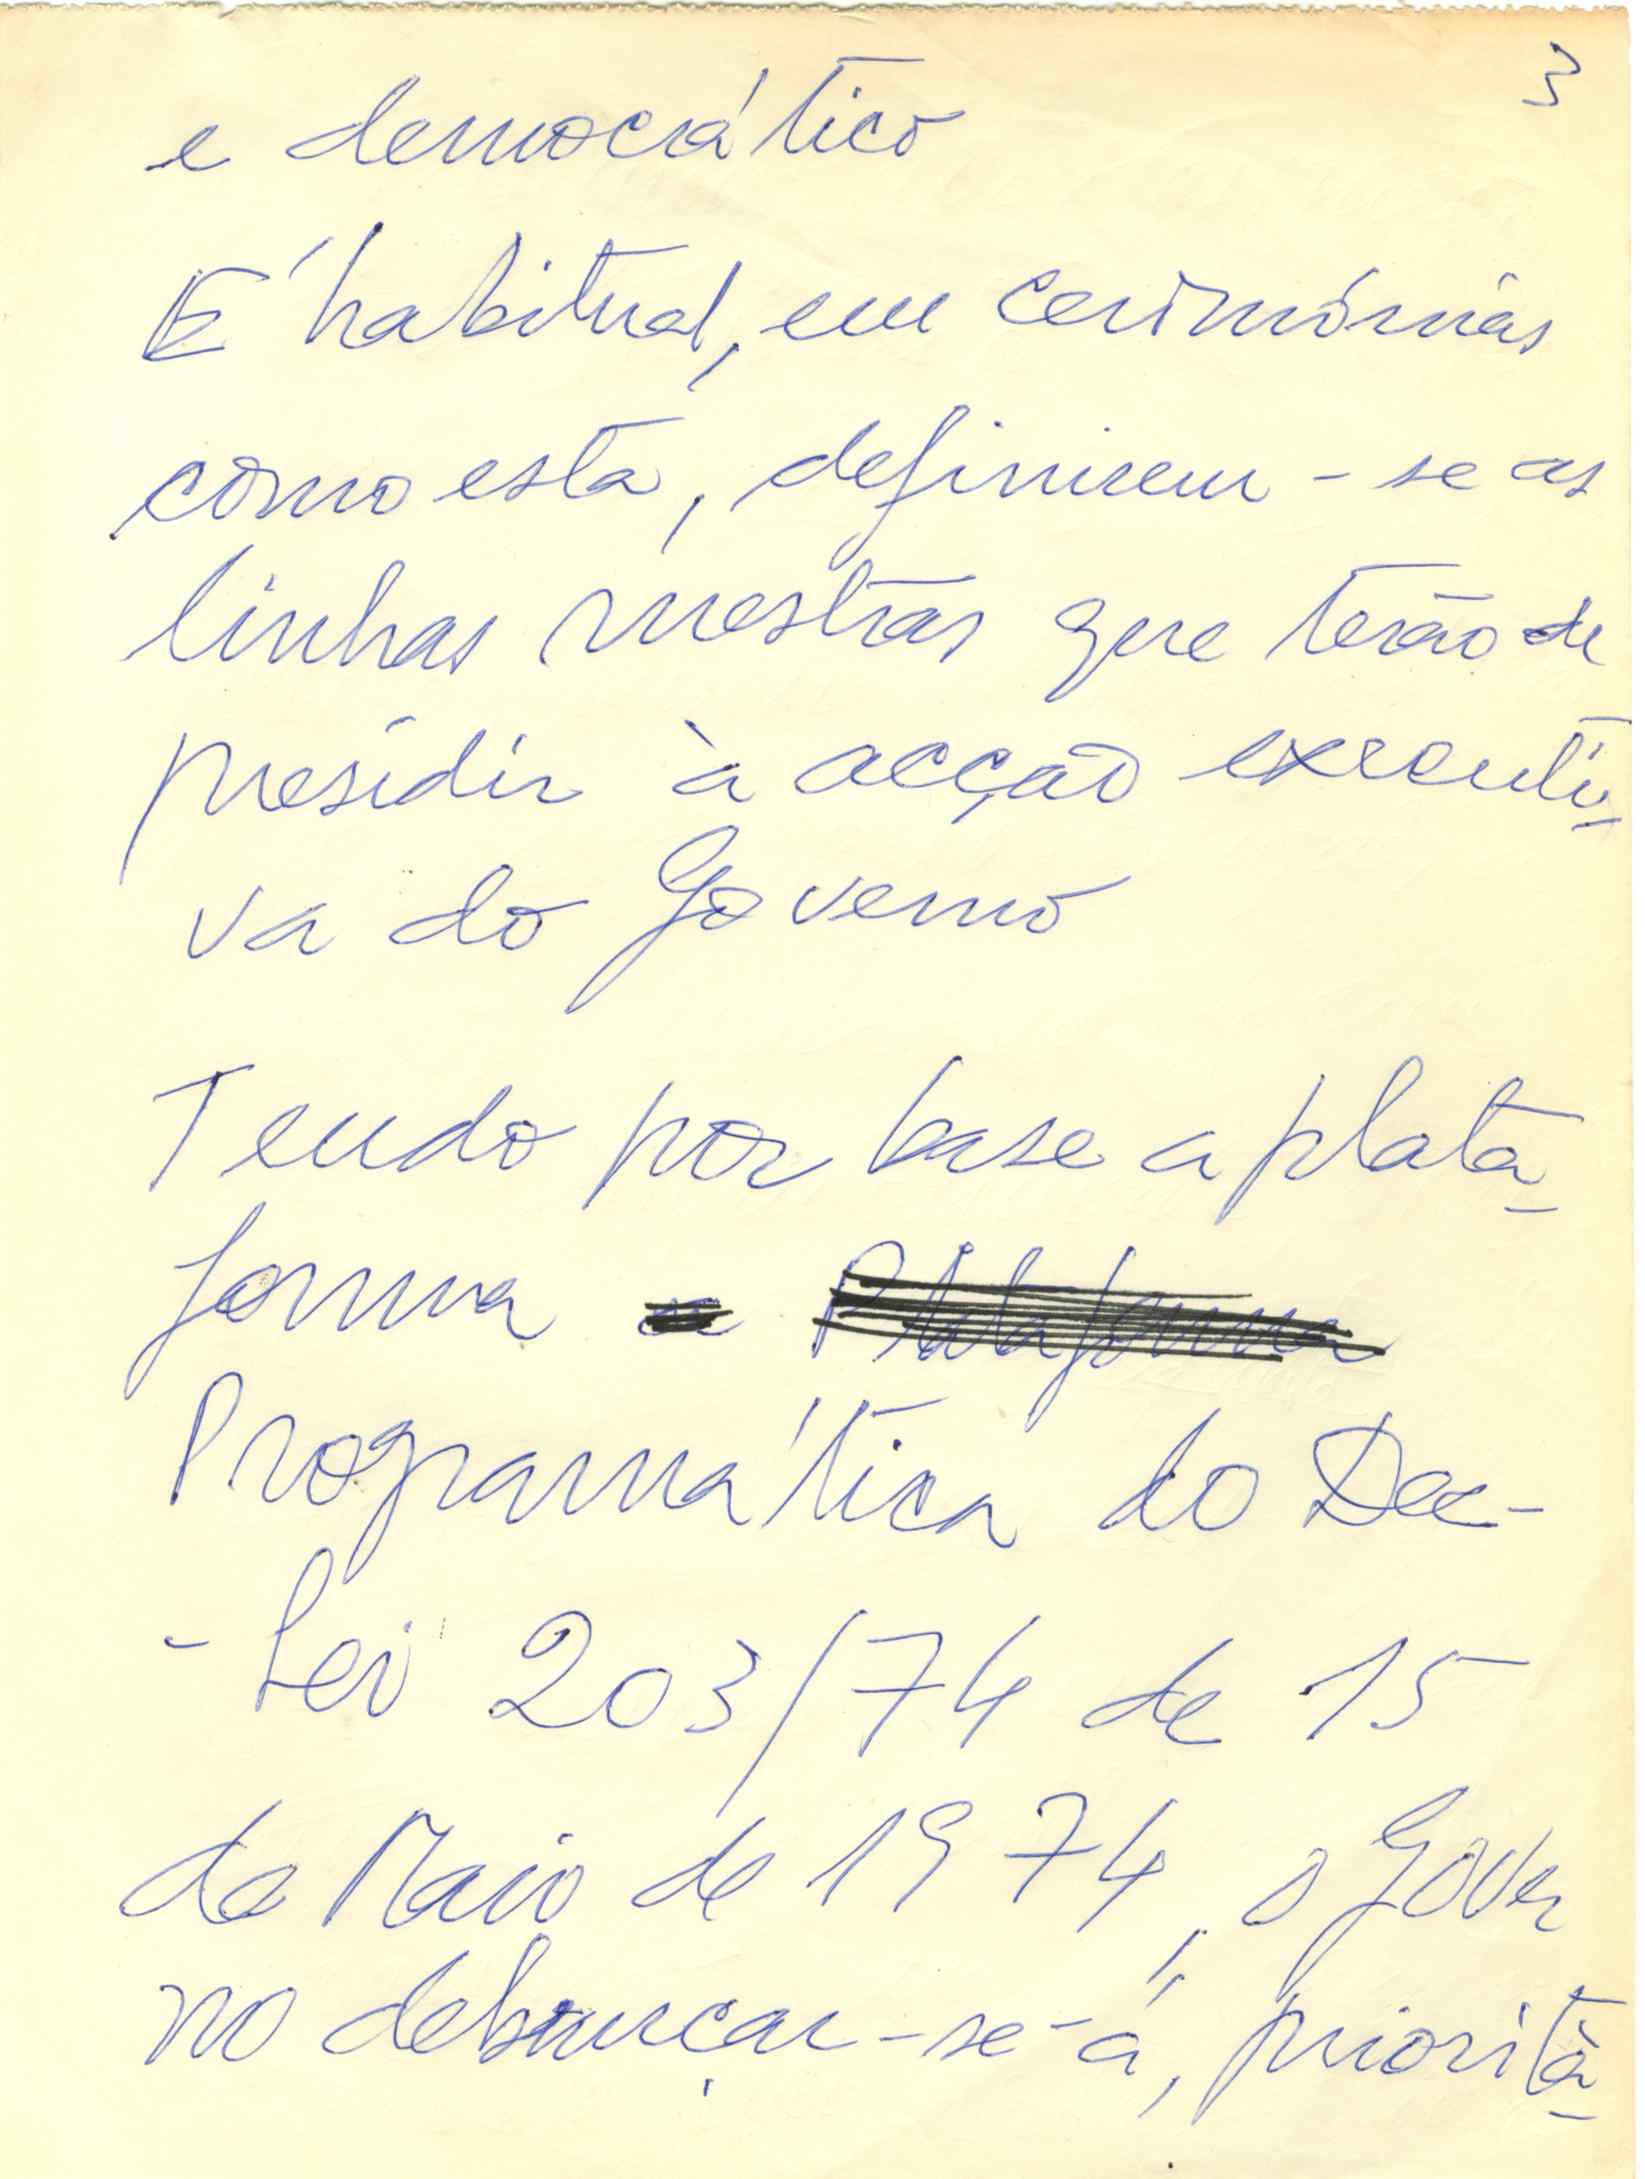 3
e democrático
É habitual, em cerimónias
como esta, definirem-se as
linhas mestras que terão de
presidir à acção executi-
va do Governo
Tendo por base a plata-
forma a Plataforma
Programática do Dec-
-Lei 203/74 de 15
de Maio de 1974, o Gover
no debruçar-se-á, priorità-